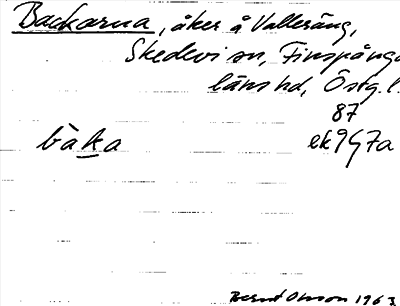 Backarna, åker å Valleräng,
Skedevi sn, Finspånga
läns hd, Östg. l.
87
bàka ek9G7a
Bernt Olsson 1963